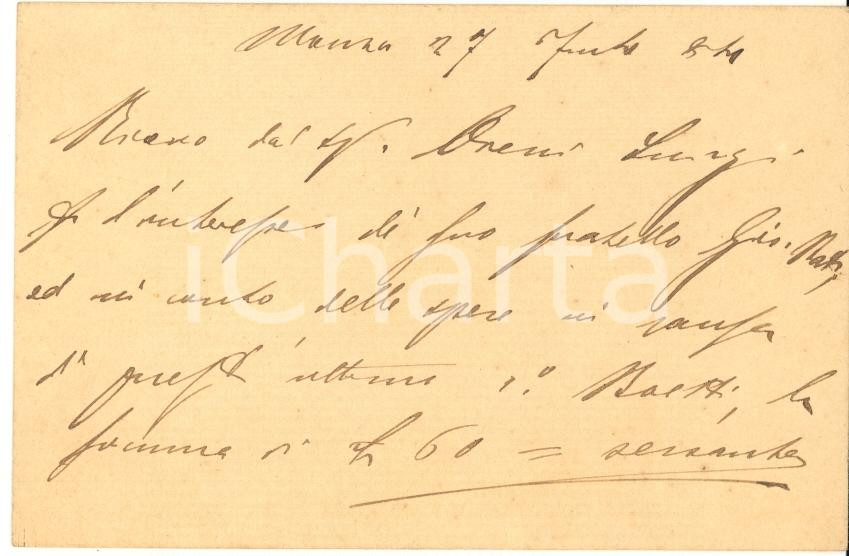 Monza 27
Ricevo dal Sig. Oreni Luigi
p l'interesse di suo fratello Gio. Batt.
ed in conto delle spese in causa
di quest'ultimo co. Boetti, la
somma di £ 60 = sessanta
iCharta